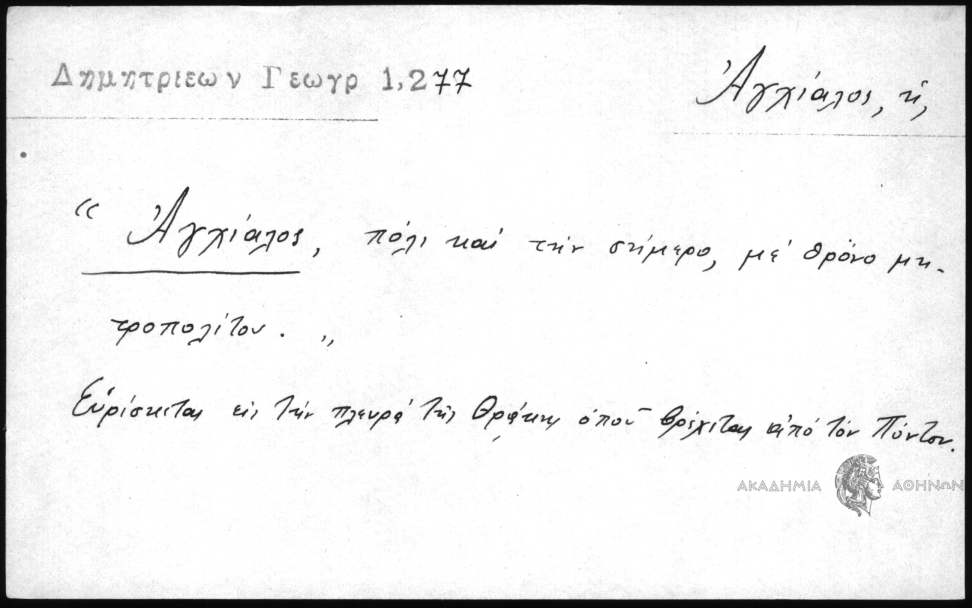 Δημητριεων Γεωγρ 1,277
Ἀγχίαλος, ἡ,
“ Ἀγχίαλος, πόλι καὶ τὴν σήμερο, μὲ θρόνο μη-
τροπολίτου. „
Εὑρίσκεται εἰς τὴν πλευρὰ τῆς Θρᾴκης ὁποῦ βρέχεται ἀπὸ τὸν Πόντον.
ΑΚΑΔΗΜΙΑ ΑΘΗΝΩΝ